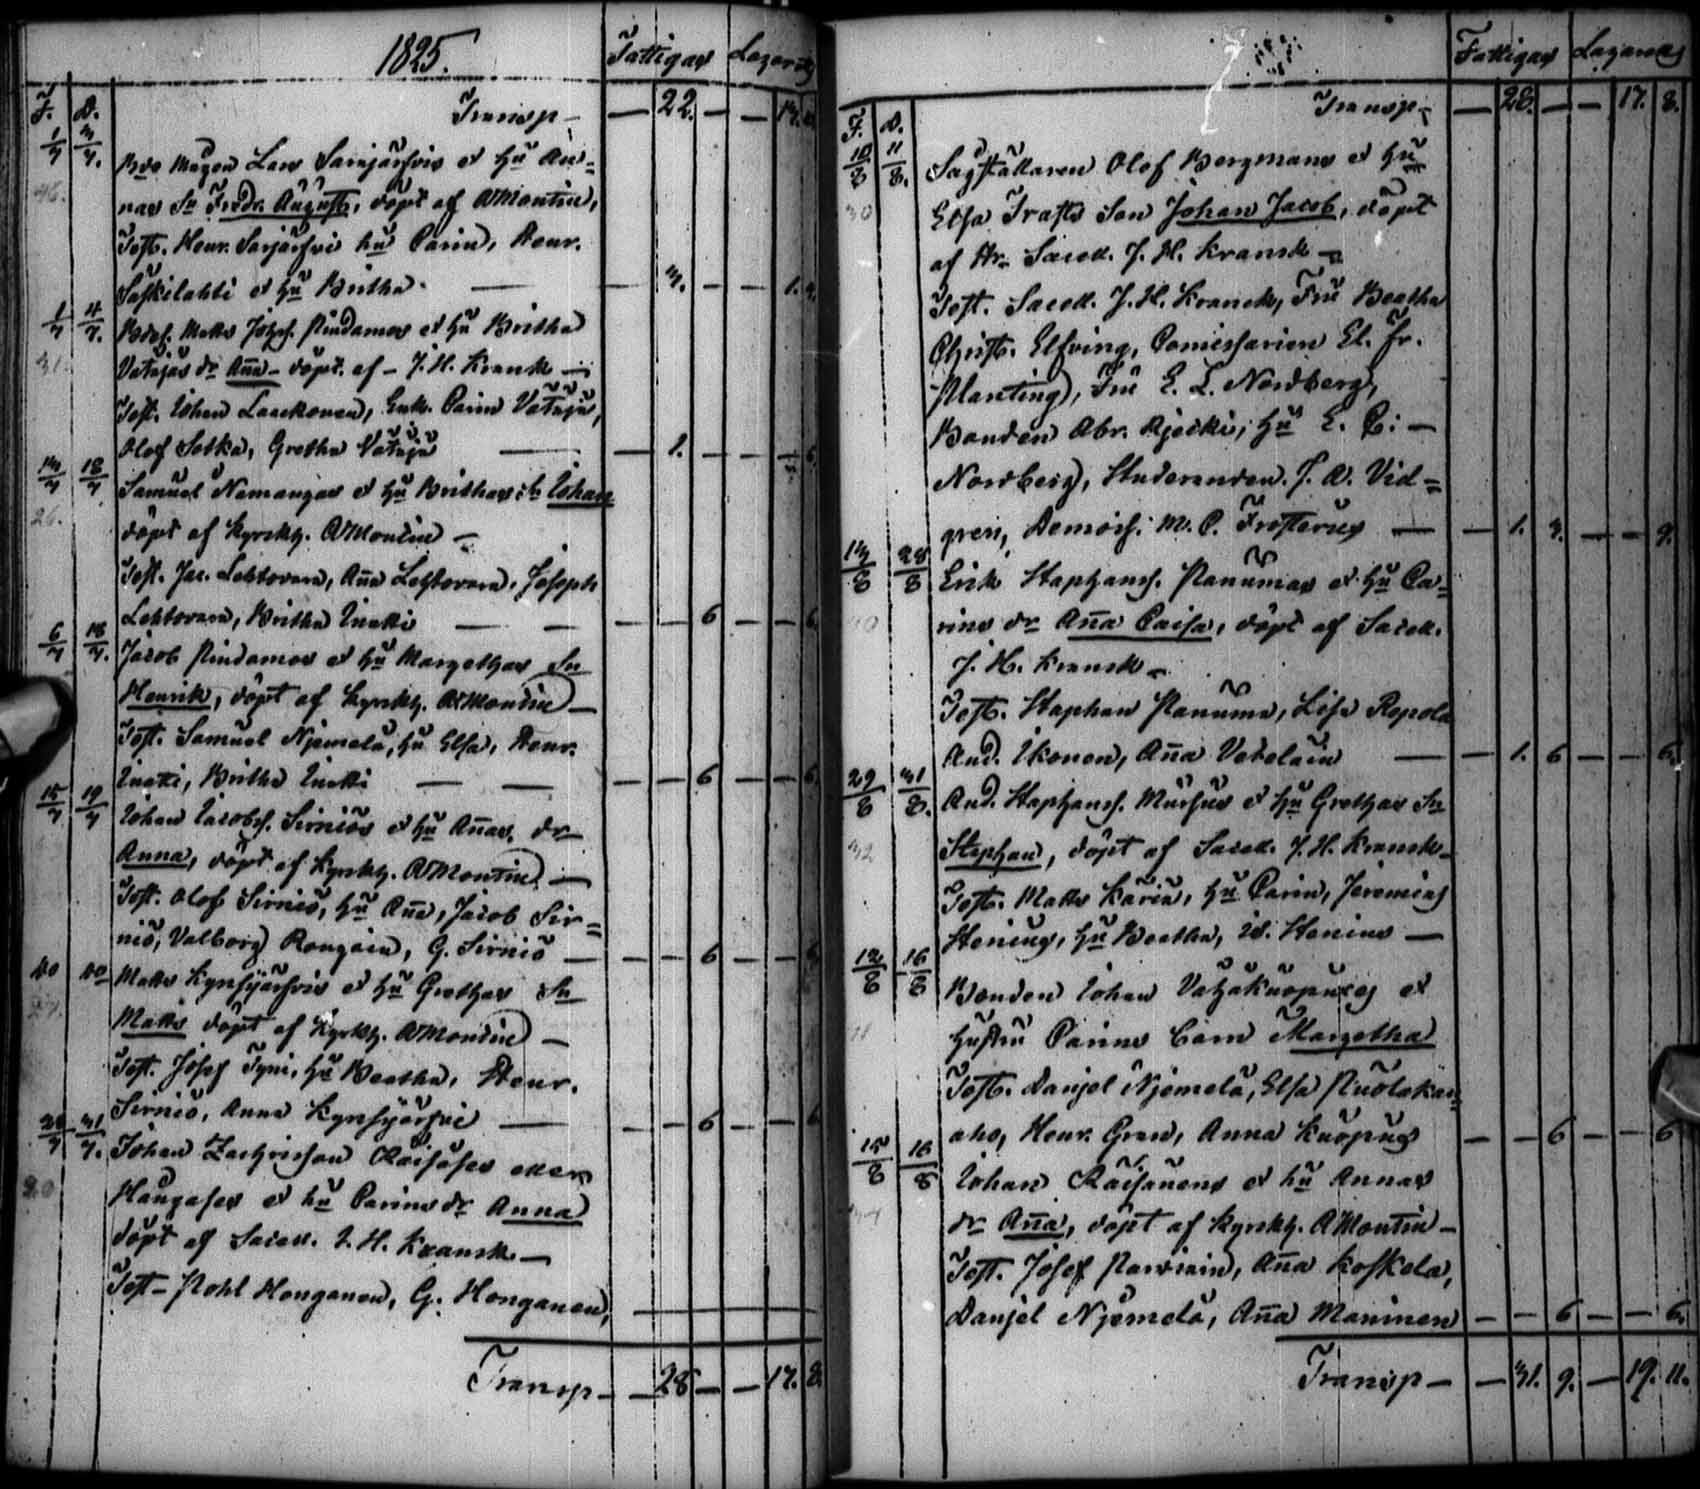 1825.
Fattigas Lazarets
F. D. Transp — 22. — — 14.
1/7 3/7. Bde Mågen Lars Sarajärfvis et Hu An=
46. nas Sn Fredr. August, döpt af A Montin,
Test. Henr. Sarjärfvi hu Carin, Henr.
Saskilahti et hu Britha. — — 3. — — 1.
1/7 4/7. Mats Johss. Pindamos et hu Britha
31. Vatajas dr Aña — döpt. af — J. H. Krank —
Test. Johan Laakonen, Enk. Carin Vataja,
Olof Sotka, Gretha Vataja — — 1. — — 6
14/7 18/7 Samuel Namangas et hu Brithas Sn Johan
26. döpt af Kyrkhj. A Montin —
Test. Jac. Lehtovara, Aña Lehtovara, Joseph
Lehtovara, Britha Inatti — — — — 6 — — 6.
6/7 18/7. Jacob Pindamos et hu Margethas Sn
Henrik, döpt af Kyrkhj. A Montin —
Test. Samuel Njemelä, hu Elsa, Henr.
Inatti, Britha Inatti — — — — 6 — — 6.
15/7 19/7 Johan Jacobss. Sirniös et hu Añas, dr
Anna, döpt af Kyrkhj. A Montin —
Test. Olof Sirniö, hu Aña, Jacob Sir=
niö, Valborg Rongain, G. Sirniö — — — 6 — — 6
do do Mats Kynsijärfvis et hu Grethas Sn
27. Mats döpt af Kyrkhj. A Montin —
Test. Josef Tyni, hu Beatha, Henr.
Sirniö, Anna Kynsijärfvi — — — 6 — — 6
28/7 31/7. Johan Zachrisson Räisäses eller
20 Haugases et hu Carins dr Anna
döpt af Sacell. J. H. Kranck —
Test — Pohl Honganen, G. Honganen,
Transp — — 28 — — 17. 8.
Fattigas Lazarets
F. D. Transp — 28. — — 17. 8.
10/8 11/8. Sagställaren Olof Bergmans et hu
30 Elsa Trasts Son Johan Jacob, döpt
af Hr. Sacell. J. H. Kranck —
Test. Sacell. J. H. Kranck, Fru Beatha
Christ. Elfving, Comissarien El. Fr.
Planting, Fru E. L. Nordberg,
Bonden Abr. Kjecki, hu E. C: —
Nordberg, Studeranden J. A. Vid=
gren, Demois. M. C. Frosterus — — 1. 3. — — 9.
14/8 28/8 Erik Staphanss. Panumas et hu Ca=
rins dr Aña Caisa, döpt af Sacell.
J. H. Kranck —
Test. Staphan Panuma, Lisa Repola
And. Ikonen, Aña Vetelain — — 1. 6 — — 6.
29/8 31/8. And. Staphanss. Mursus et hu Grethas Sn
32 Stephan, döpt af Sacell. J. H. Kranck —
Test. Mats Karin, hu Carin, Jeremias
Stenius, hu Beatha, Stenius —
12/8 16/8 Bonden Johan Vatjakuopuses et
hustru Carins barn Margetha
Test. Danjel Njemelä, Elsa Puolakan=
aho, Henr. Gren, Anna Kuopus — — 6 — — 6
15/8 16/8 Johan Räisänens et hu Annas
34 dr Aña, döpt af Kyrkhj. A Montin —
Test. Josef Parviain, Aña Koskela,
Danjel Njemelä, Aña Maninen — — 6 — — 6.
Transp — — 31. 9. — 19. 11.